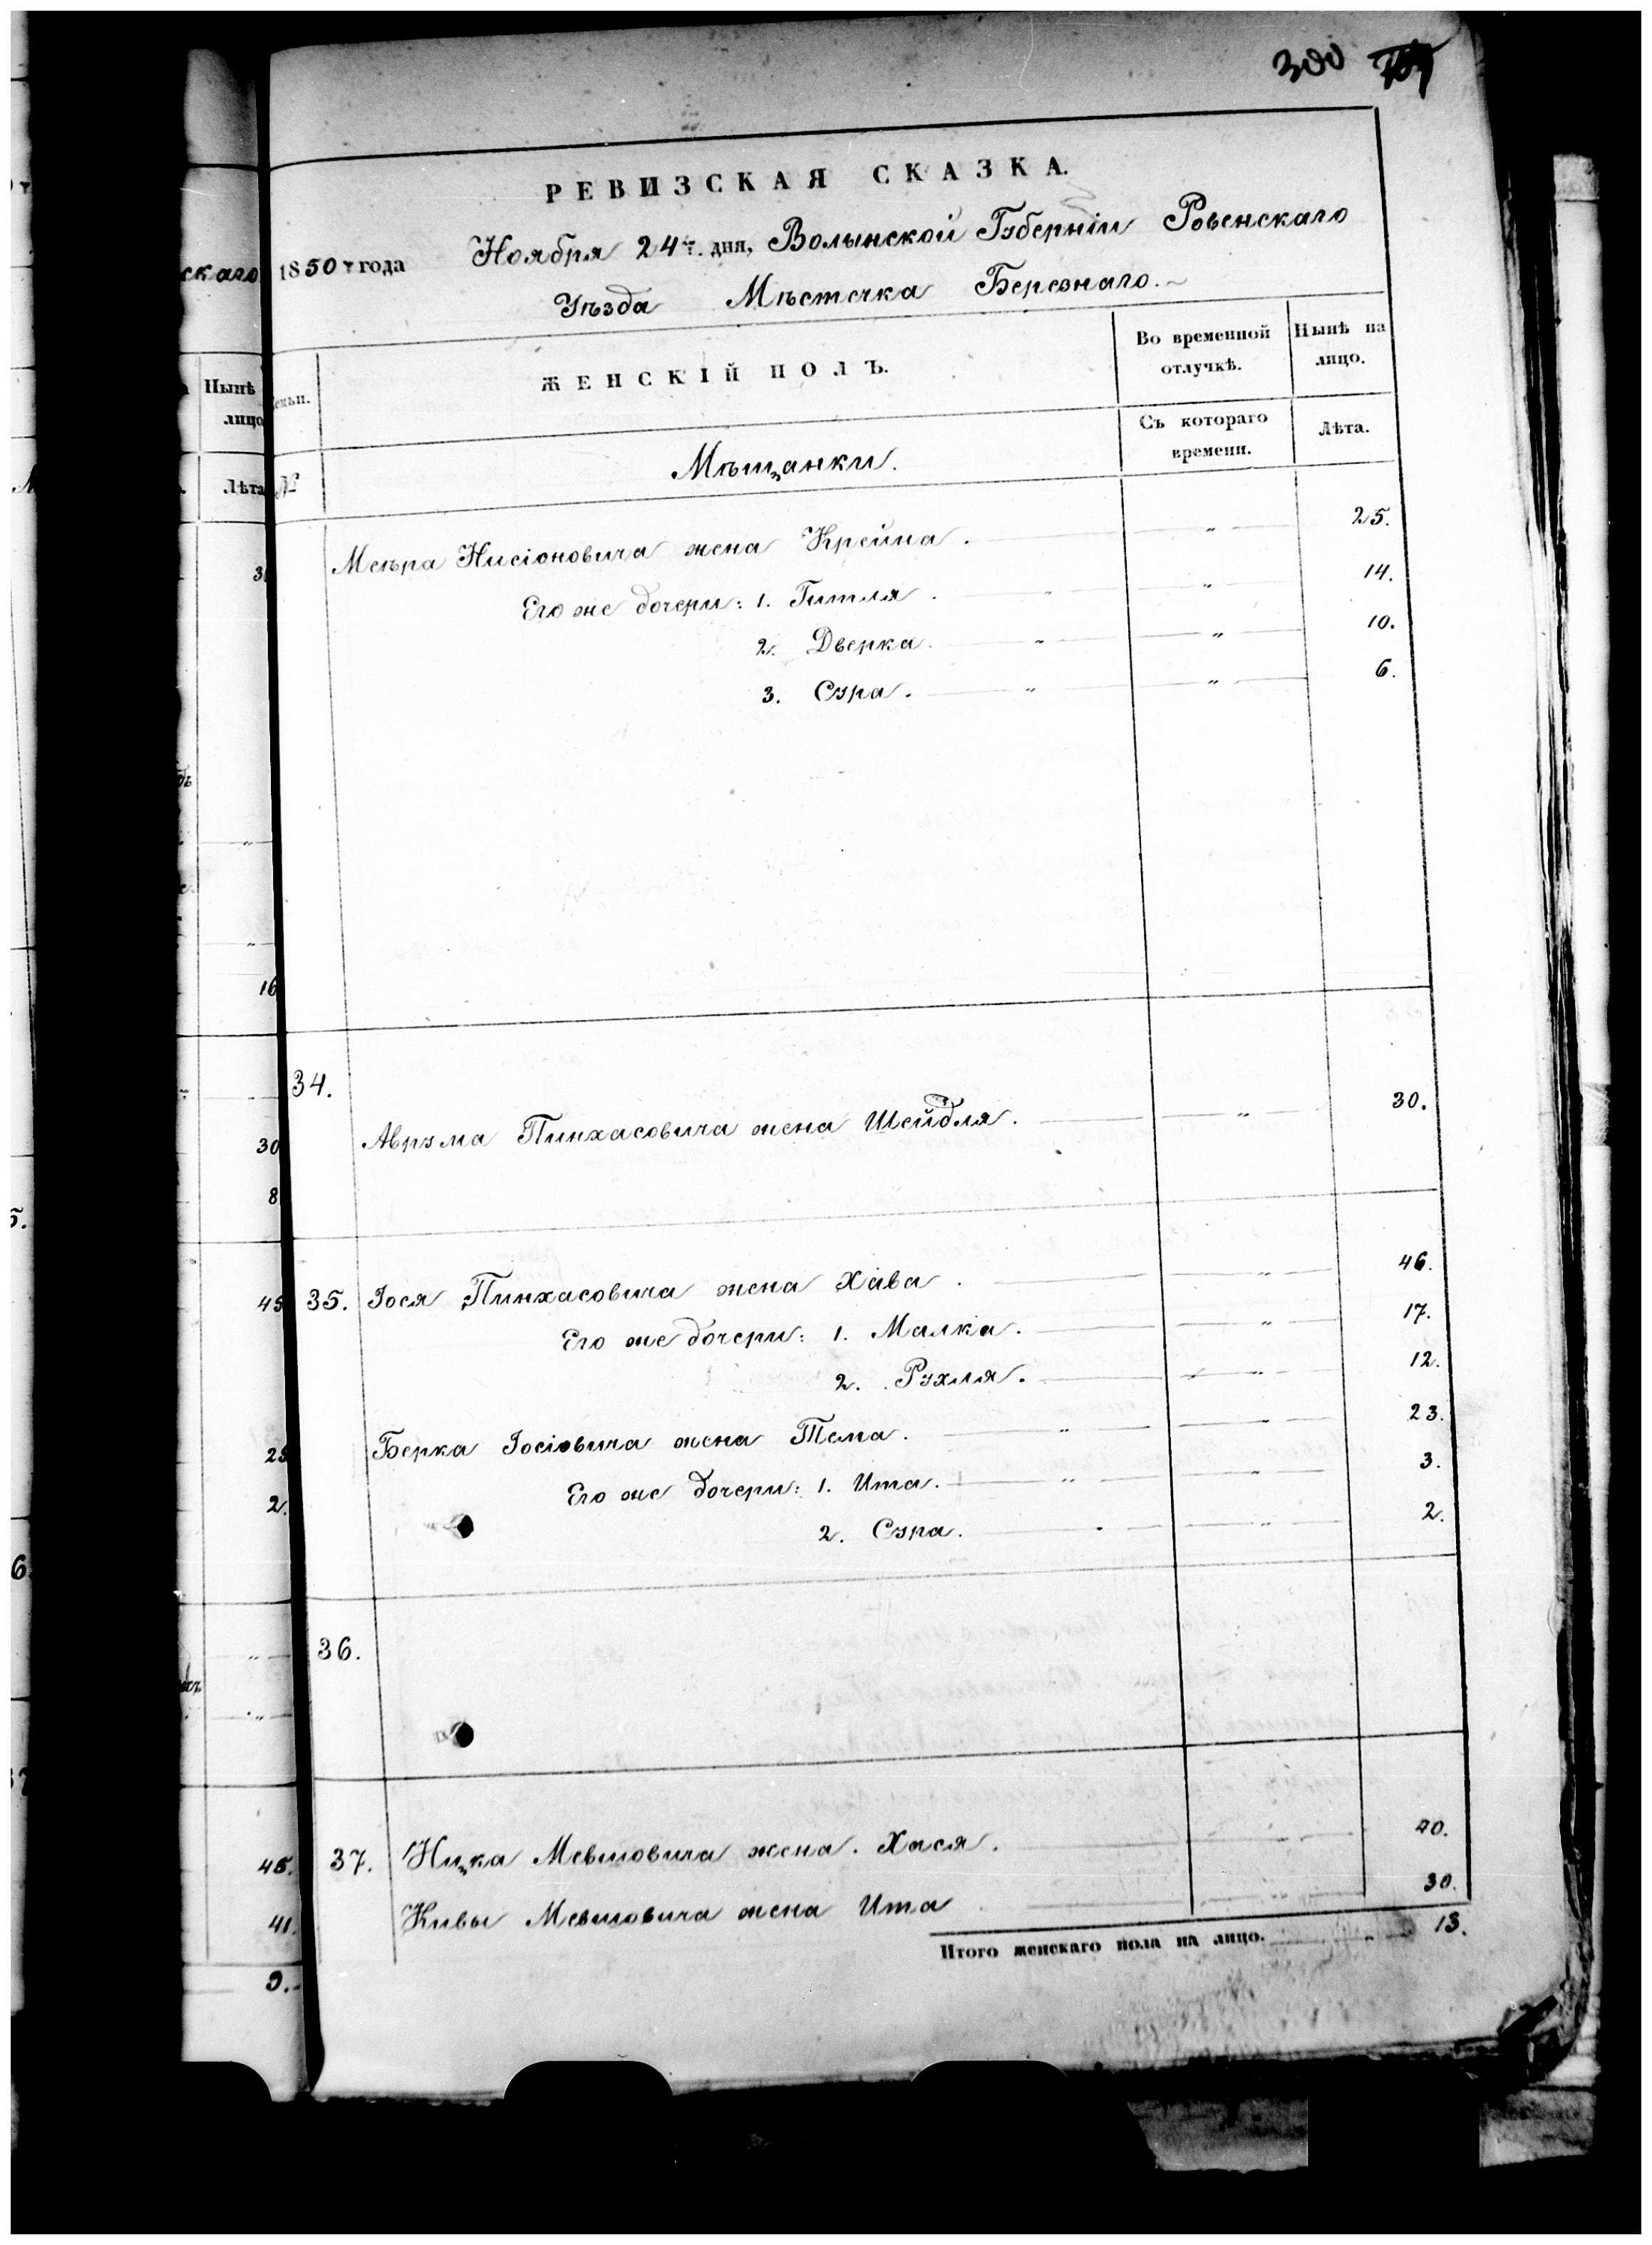 300
РЕВИЗСКАЯ СКАЗКА.
1850 года Ноября 24 дня, Волынской Губерніи Ровенскаго
Уѣзда Мѣстечка Березнаго.
ЖЕНСКІЙ ПОЛЪ.
Во временной отлучкѣ.
Нынѣ на лицо.
№
Мѣщанки.
Съ котораго времени.
Лѣта.
Меѣра Нисіоновича жена Крейна. " 25.
Его же дочери: 1. Гитля. " " 14.
2. Дверка. " " 10.
3. Сэра. " " 6.
34.
Аврэма Пинхасовича жена Шейдля. " 30.
35. Іося Пинхасовича жена Хава. " 46.
Его же дочери: 1. Малка. " 17.
2. Рэхля. " 12.
Берка Іосіовича жена Тема. " 23.
Его же дочери: 1. Ита. " " 3.
2. Сэра. " 2.
36.
37. Ницка Мевшовича жена. Хася. 40.
Кивы Мевшовича жена Ита 30.
Итого женскаго пола на лицо. 13.
Нынѣ
лицо
Лѣта
16
30
8
45
2.
45.
41.
9.